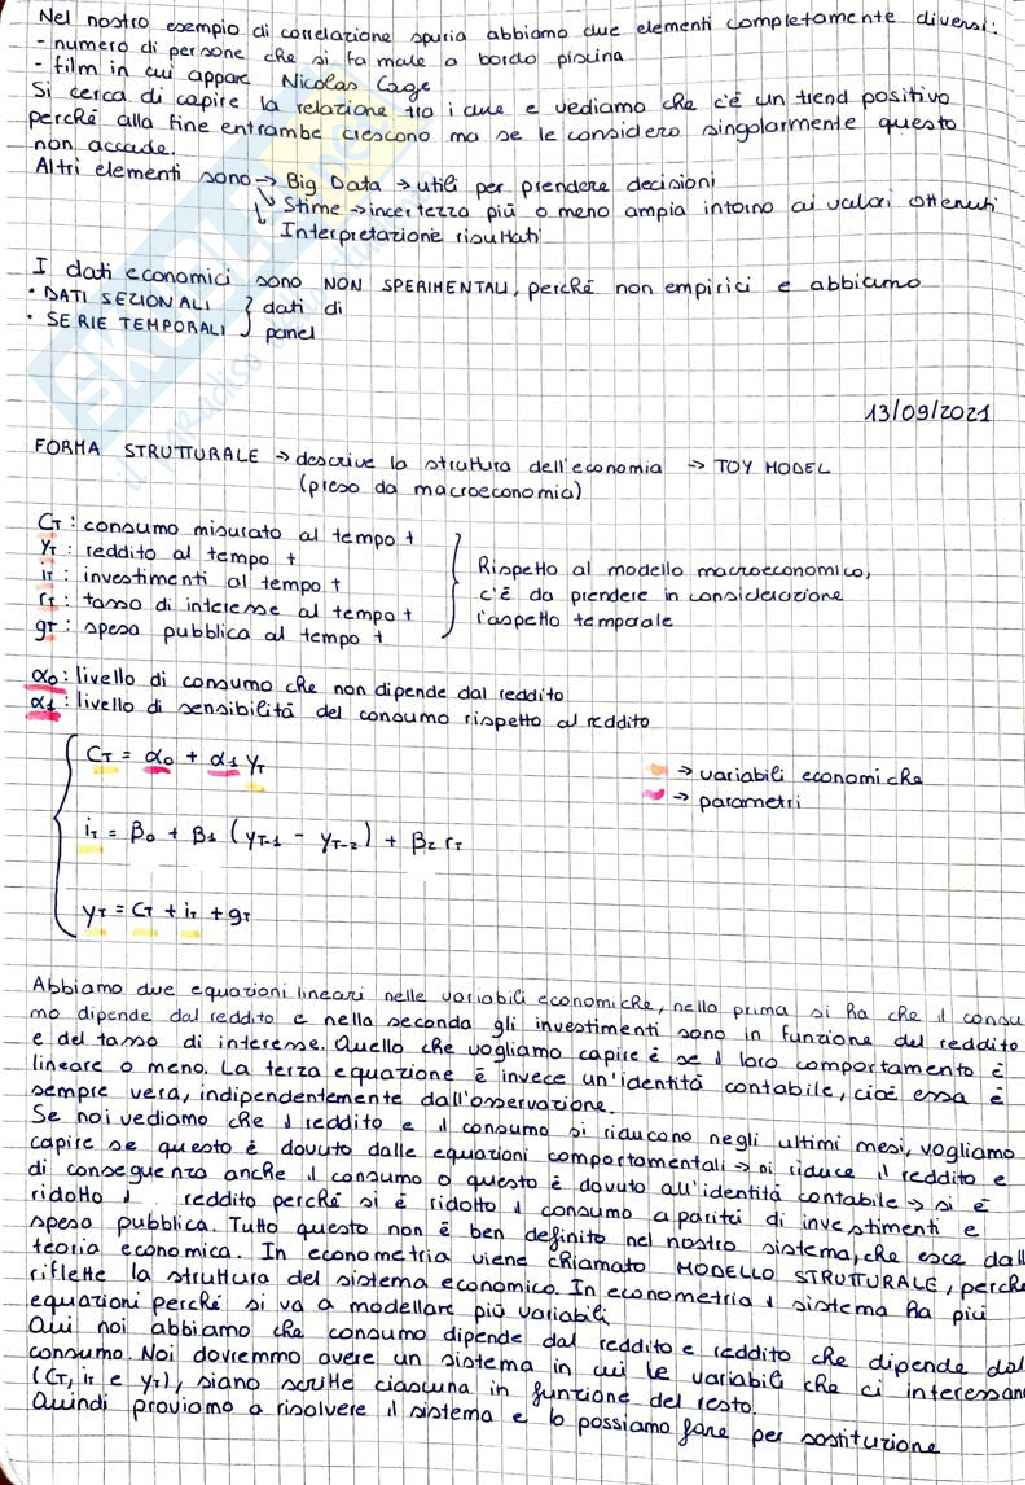 Nel nostro esempio di correlazione spuria abbiamo due elementi completamente diversi:
- numero di persone che si fa male a bordo piscina
- film in cui appare Nicolas Cage
Si cerca di capire la relazione tra i due e vediamo che c'è un trend positivo
perché alla fine entrambe crescono ma se le considero singolarmente questo
non accade.
Altri elementi sono → Big Data → utili per prendere decisioni
↘ Stime → incertezza più o meno ampia intorno ai valori ottenuti
↘ Interpretazione risultati
I dati economici sono NON SPERIMENTALI, perché non empirici e abbiamo
• DATI SEZIONALI } dati di
• SERIE TEMPORALI } panel
13/09/2021
FORMA STRUTTURALE → descrive la struttura dell'economia → TOY MODEL
(preso da macroeconomia)
CT : consumo misurato al tempo t
YT : reddito al tempo t
iT : investimenti al tempo t
rT : tasso di interesse al tempo t
gT : spesa pubblica al tempo t
Rispetto al modello macroeconomico,
c'è da prendere in considerazione
l'aspetto temporale
α0 : livello di consumo che non dipende dal reddito
α1 : livello di sensibilità del consumo rispetto al reddito
CT = α0 + α1 YT
→ variabili economiche
→ parametri
iT = β0 + β1 (yT-1 - yT-2) + β2 rT
yT = CT + iT + gT
Abbiamo due equazioni lineari nelle variabili economiche, nella prima si ha che il consu
mo dipende dal reddito e nella seconda gli investimenti sono in funzione del reddito
e del tasso di interesse. Quello che vogliamo capire è se il loro comportamento è
lineare o meno. La terza equazione è invece un'identità contabile, cioè essa è
sempre vera, indipendentemente dall'osservazione.
Se noi vediamo che il reddito e il consumo si riducono negli ultimi mesi, vogliamo
capire se questo è dovuto dalle equazioni comportamentali → si riduce il reddito e
di conseguenza anche il consumo o questo è dovuto all'identità contabile → si è
ridotto il reddito perché si è ridotto il consumo a parità di investimenti e
spesa pubblica. Tutto questo non è ben definito nel nostro sistema, che esce dall
teoria economica. In econometria viene chiamato MODELLO STRUTTURALE, perché
riflette la struttura del sistema economico. In econometria il sistema ha più
equazioni perché si va a modellare più variabili.
Qui noi abbiamo che consumo dipende dal reddito e reddito che dipende dal
consumo. Noi dovremmo avere un sistema in cui le variabili che ci interessan
(CT, iT e yT), siano scritte ciascuna in funzione del resto.
Quindi proviamo a risolvere il sistema e lo possiamo fare per sostituzione